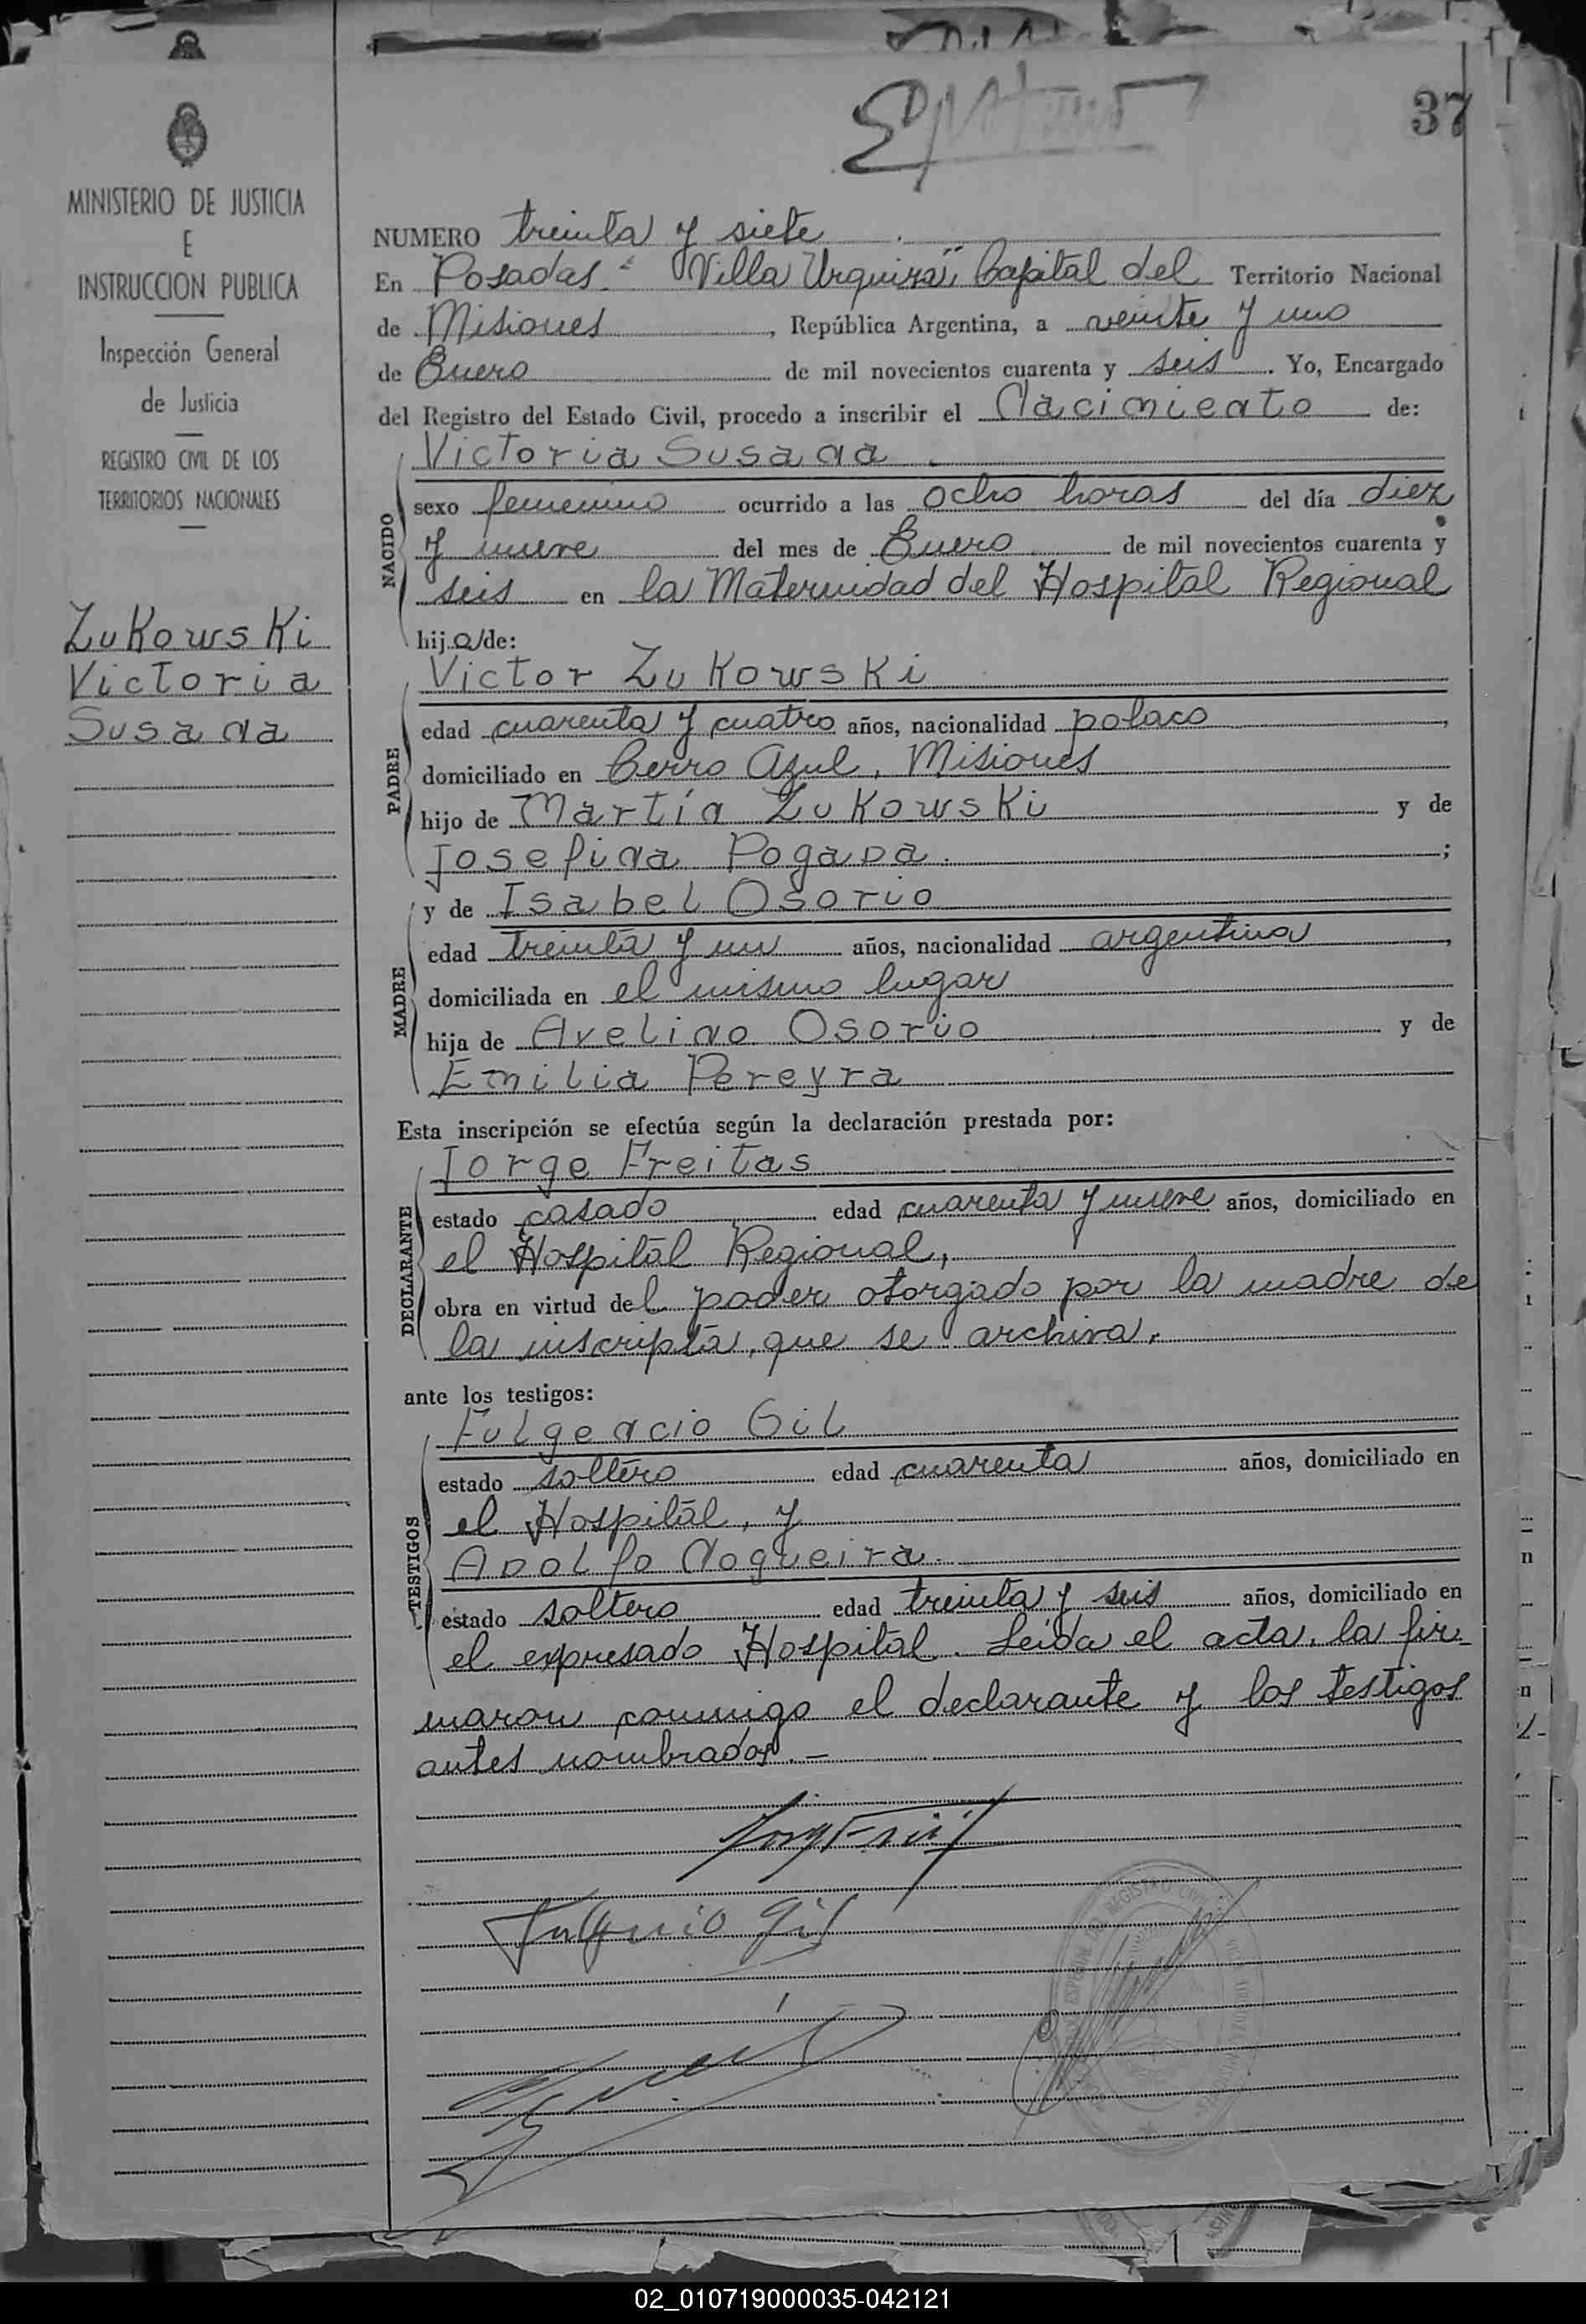 37
MINISTERIO DE JUSTICIA
E
INSTRUCCION PUBLICA
Inspección General
de Justicia
REGISTRO CIVIL DE LOS
TERRITORIOS NACIONALES
Zukowski
Victoria
Susana
NUMERO treinta y siete
En Posadas "Villa Urquiza", Capital del Territorio Nacional
de Misiones, República Argentina, a veinte y uno
de Enero de mil novecientos cuarenta y seis. Yo, Encargado
del Registro del Estado Civil, procedo a inscribir el Nacimiento de:
Victoria Susana
NACIDO
sexo femenino ocurrido a las ocho horas del día diez
y nueve del mes de Enero de mil novecientos cuarenta y
seis en la Maternidad del Hospital Regional
hija de:
Victor Zukowski
PADRE
edad cuarenta y cuatro años, nacionalidad polaco,
domiciliado en Cerro Azul, Misiones
hijo de Martín Zukowski y de
Josefina Pogana.;
y de Isabel Osorio
MADRE
edad treinta y un años, nacionalidad argentina,
domiciliada en el mismo lugar
hija de Avelino Osorio y de
Emilia Pereyra
Esta inscripción se efectúa según la declaración prestada por:
Jorge Freitas
DECLARANTE
estado casado edad cuarenta y nueve años, domiciliado en
el Hospital Regional,
obra en virtud del poder otorgado por la madre de
la inscripta, que se archiva.
ante los testigos:
Fulgencio Gil
TESTIGOS
estado soltero edad cuarenta años, domiciliado en
el Hospital, y
Adolfo Nogueira.
estado soltero edad treinta y seis años, domiciliado en
el expresado Hospital. Leída el acta, la fir-
maron conmigo el declarante y los testigos
antes nombrados.-
Fulgencio Gil
02_010719000035-042121